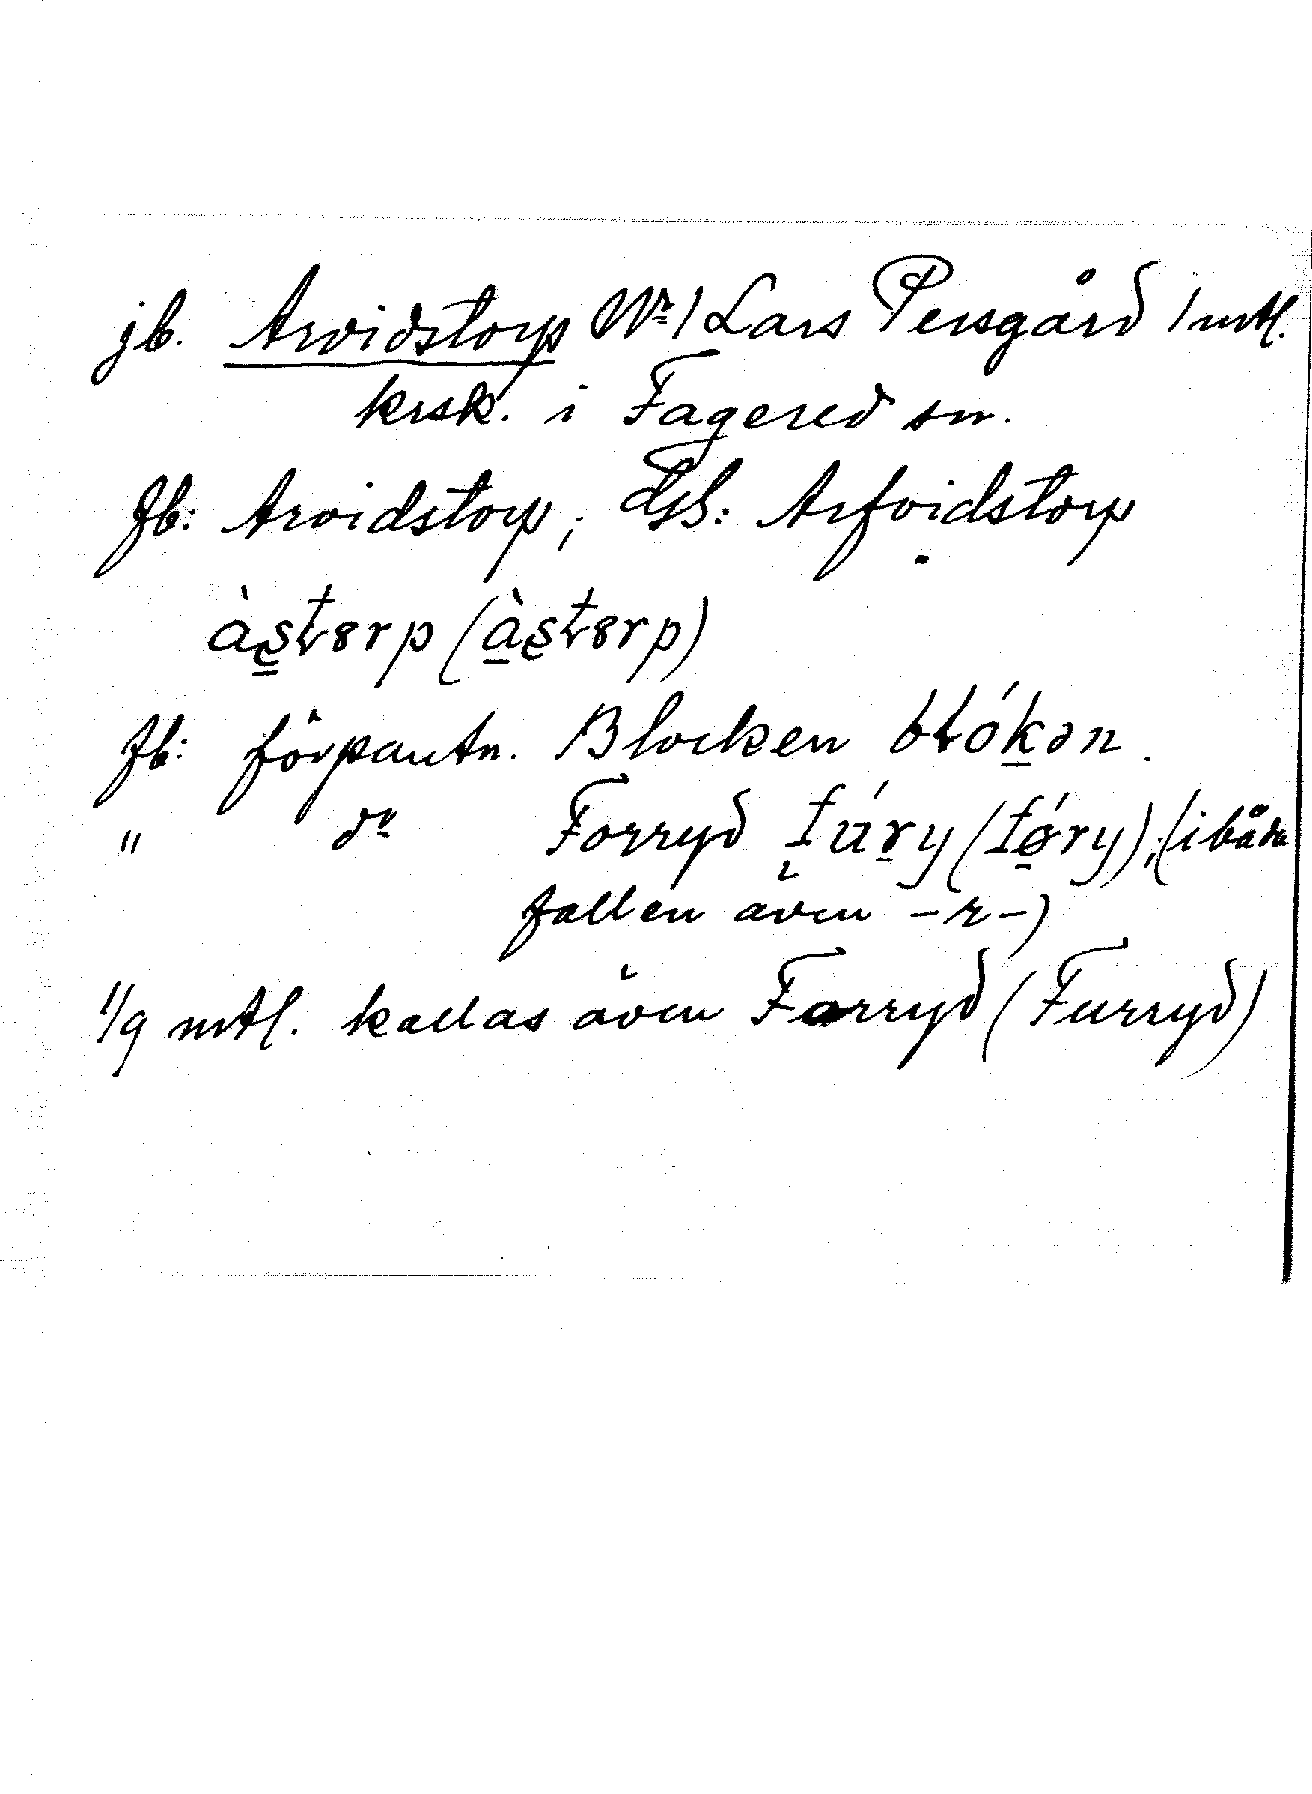 jb. Arvidstorp Nr 1 Lars Persgård 1 mtl.
krsk. i Fagered sn.
Jb: Arvidstorp; Gsb: Arfvidstorp
àstɵrp (àstɵrp)
Jb: förpantn. Blocken błókən.
" do Forryd fúry (fǿry); (i båda
fallen även -r-)
1/9 mtl. kallas även Forryd (Furryd)